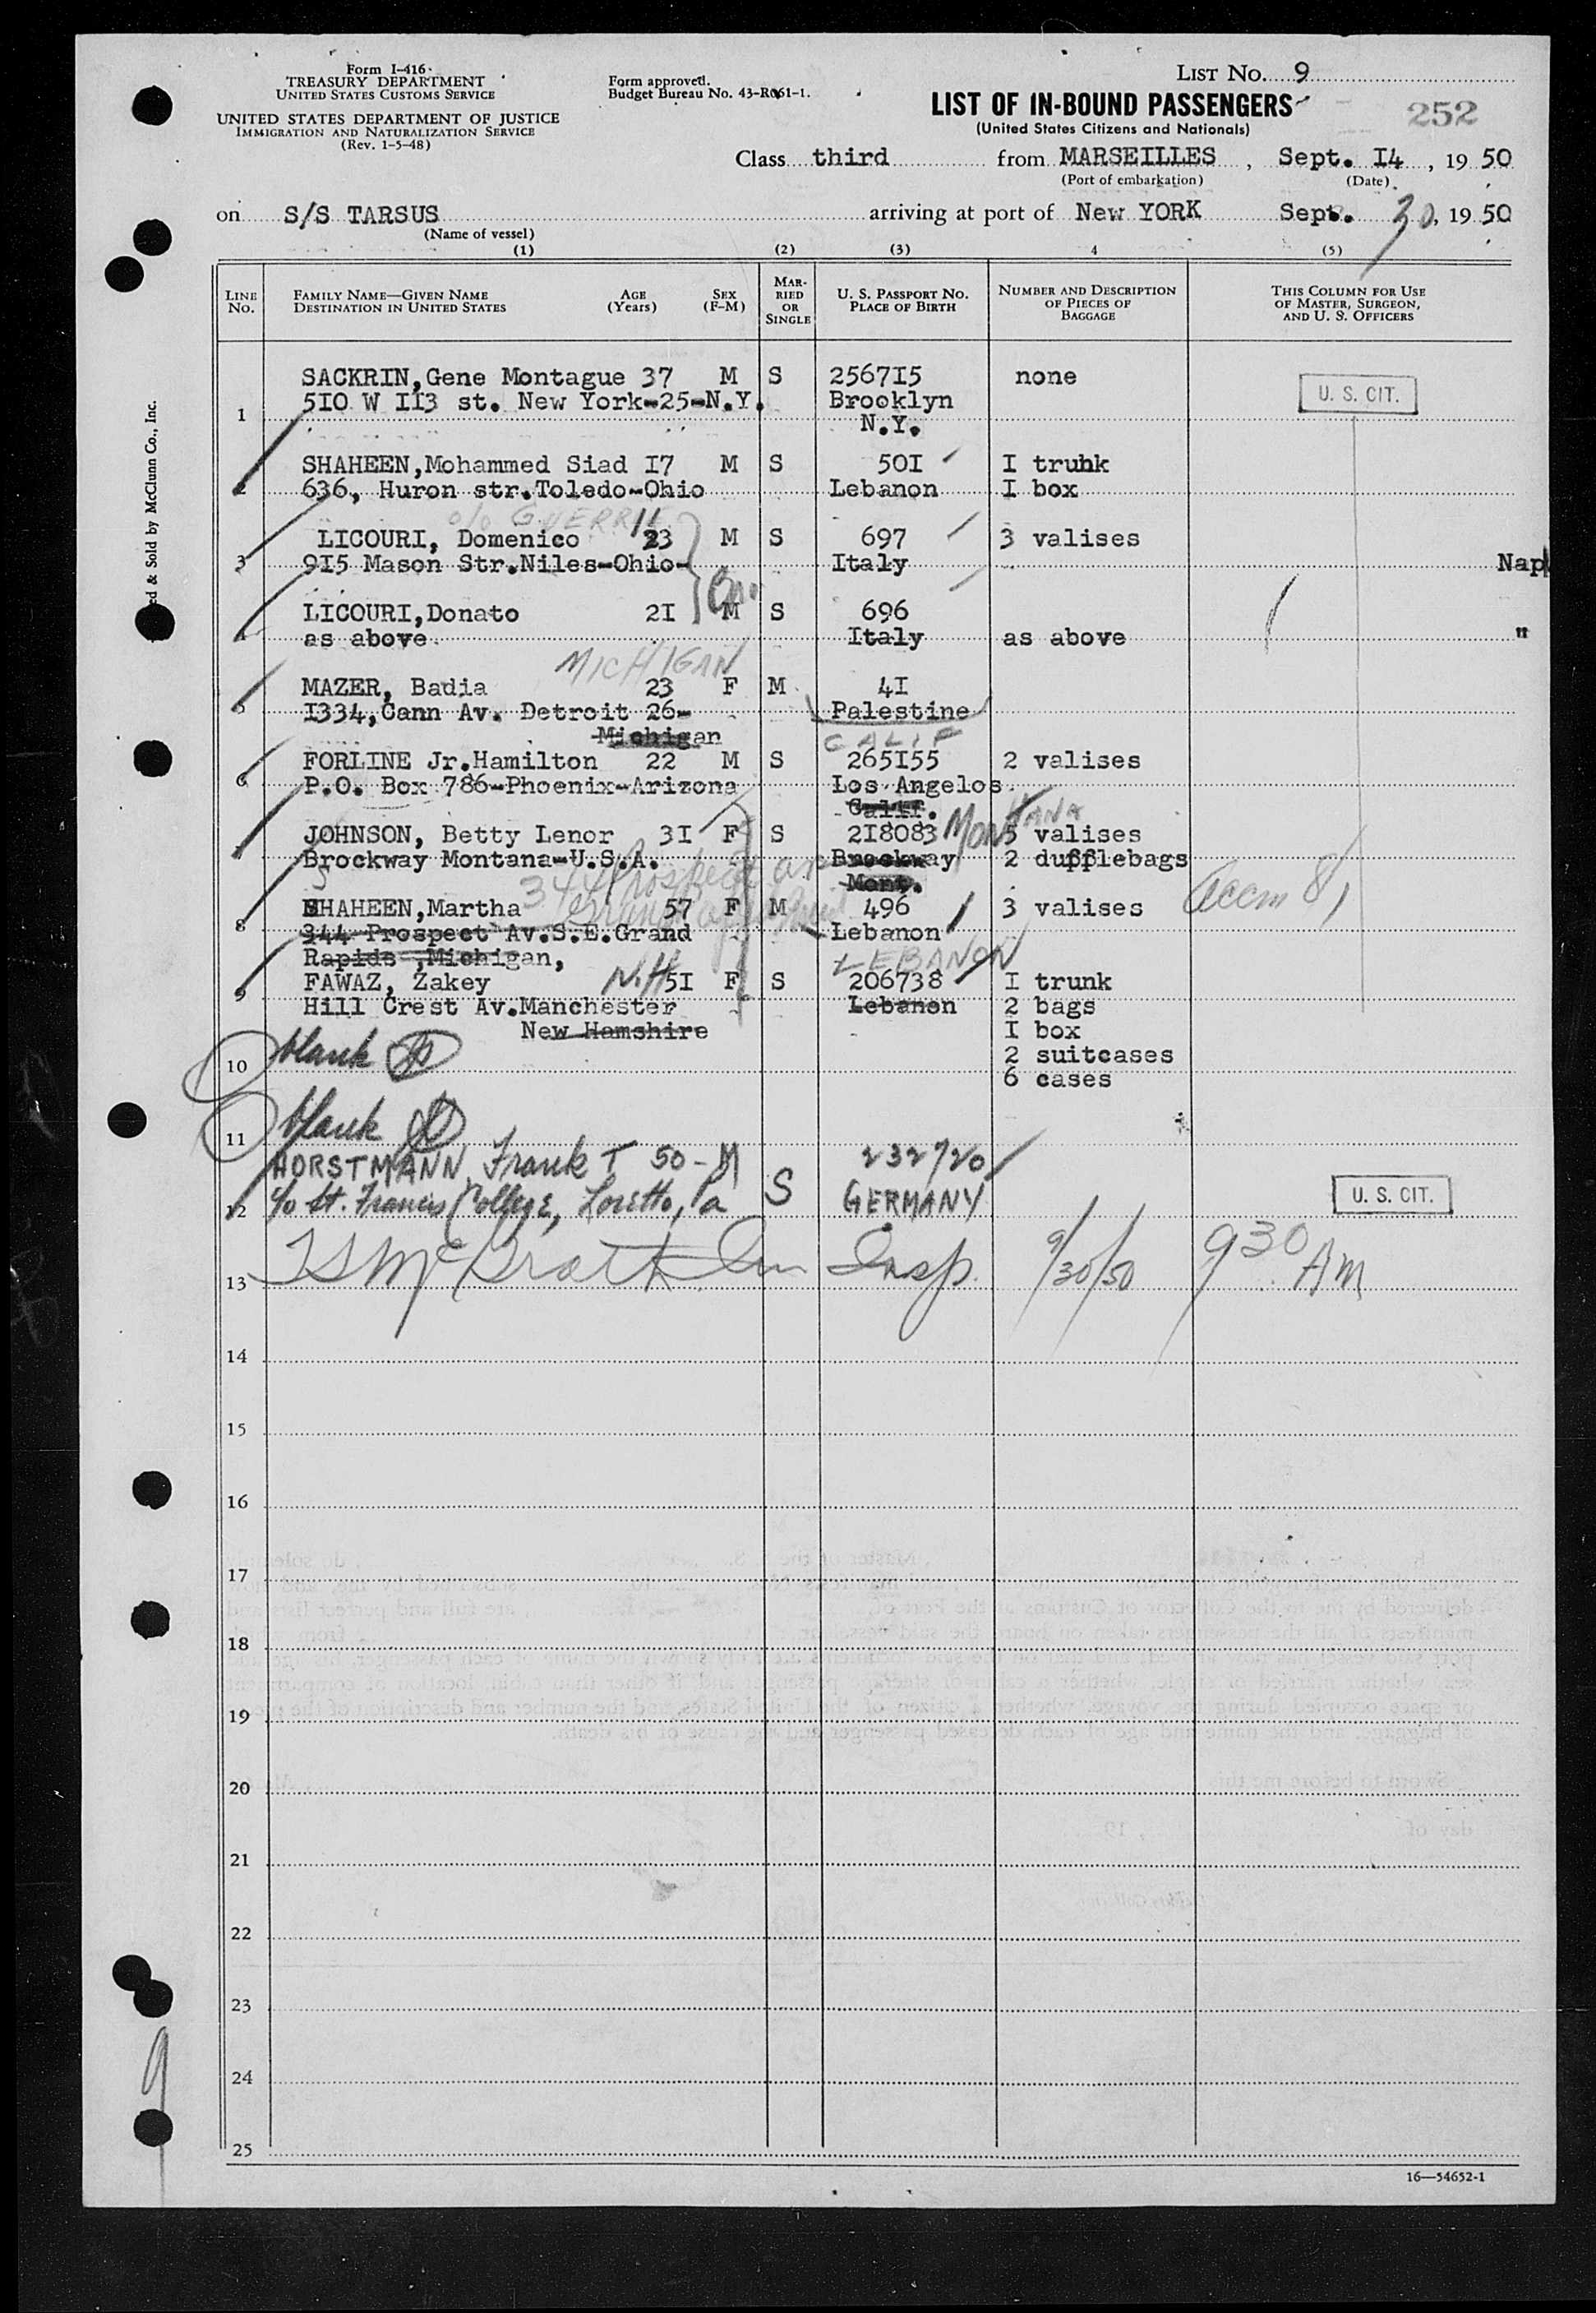 Form I-416
TREASURY DEPARTMENT
UNITED STATES CUSTOMS SERVICE
UNITED STATES DEPARTMENT OF JUSTICE
IMMIGRATION AND NATURALIZATION SERVICE
(Rev. 1-5-48)
Form approved.
Budget Bureau No. 43-R061-1.
LIST No. 9
LIST OF IN-BOUND PASSENGERS
(United States Citizens and Nationals)
252
Class third from MARSEILLES, Sept. I4, 19 50
(Port of embarkation) (Date)
on S/S TARSUS arriving at port of New YORK Sept. 30, 19 50
(Name of vessel)
(1) (2) (3) 4 (5)
LINE No. FAMILY NAME—GIVEN NAME DESTINATION IN UNITED STATES AGE (Years) SEX (F-M) MARRIED OR SINGLE U. S. PASSPORT No. PLACE OF BIRTH NUMBER AND DESCRIPTION OF PIECES OF BAGGAGE THIS COLUMN FOR USE OF MASTER, SURGEON, AND U. S. OFFICERS
SACKRIN,Gene Montague 37 M S 2567I5 none
U. S. CIT.
1 5IO W II3 st. New York-25-N.Y. Brooklyn
N.Y.
SHAHEEN,Mohammed Siad I7 M S 50I I trunk
2 636, Huron str.Toledo-Ohio Lebanon I box
LICOURI, Domenico 23 M S 697 3 valises
3 9I5 Mason Str.Niles-Ohio- Italy Nap
LICOURI,Donato 2I M S 696
4 as above Italy as above "
MICHIGAN
MAZER, Badia 23 F M 4I
5 I334,Cann Av. Detroit 26- Palestine
Michigan CALIF
FORLINE Jr.Hamilton 22 M S 265I55 2 valises
6 P.O. Box 786-Phoenix-Arizona Los Angelos
Calif.
JOHNSON, Betty Lenor 3I F S 2I8083 MONTANA 5 valises
7 Brockway Montana-U.S.A. Brockway 2 dufflebags
Mont.
344 Prospect
SHAHEEN,Martha 57 F M 496 3 valises
8 344 Prospect Av.S.E.Grand Lebanon
Rapids ,Michigan, LEBANON
FAWAZ, Zakey N.H 5I F S 206738 I trunk
9 Hill Crest Av.Manchester Lebanon 2 bags
New Hamshire I box
10 blank 2 suitcases
6 cases
11 blank
HORSTMANN, Frank T 50 - M S 232720
12 c/o St. Francis College, Loretto, Pa GERMANY U. S. CIT.
13 McGrath Im Insp. 9/30/50 9 30 AM
14
15
16
17
18
19
20
21
22
23
24
25
16—54652-1
ed & Sold by McClunn Co., Inc.
9